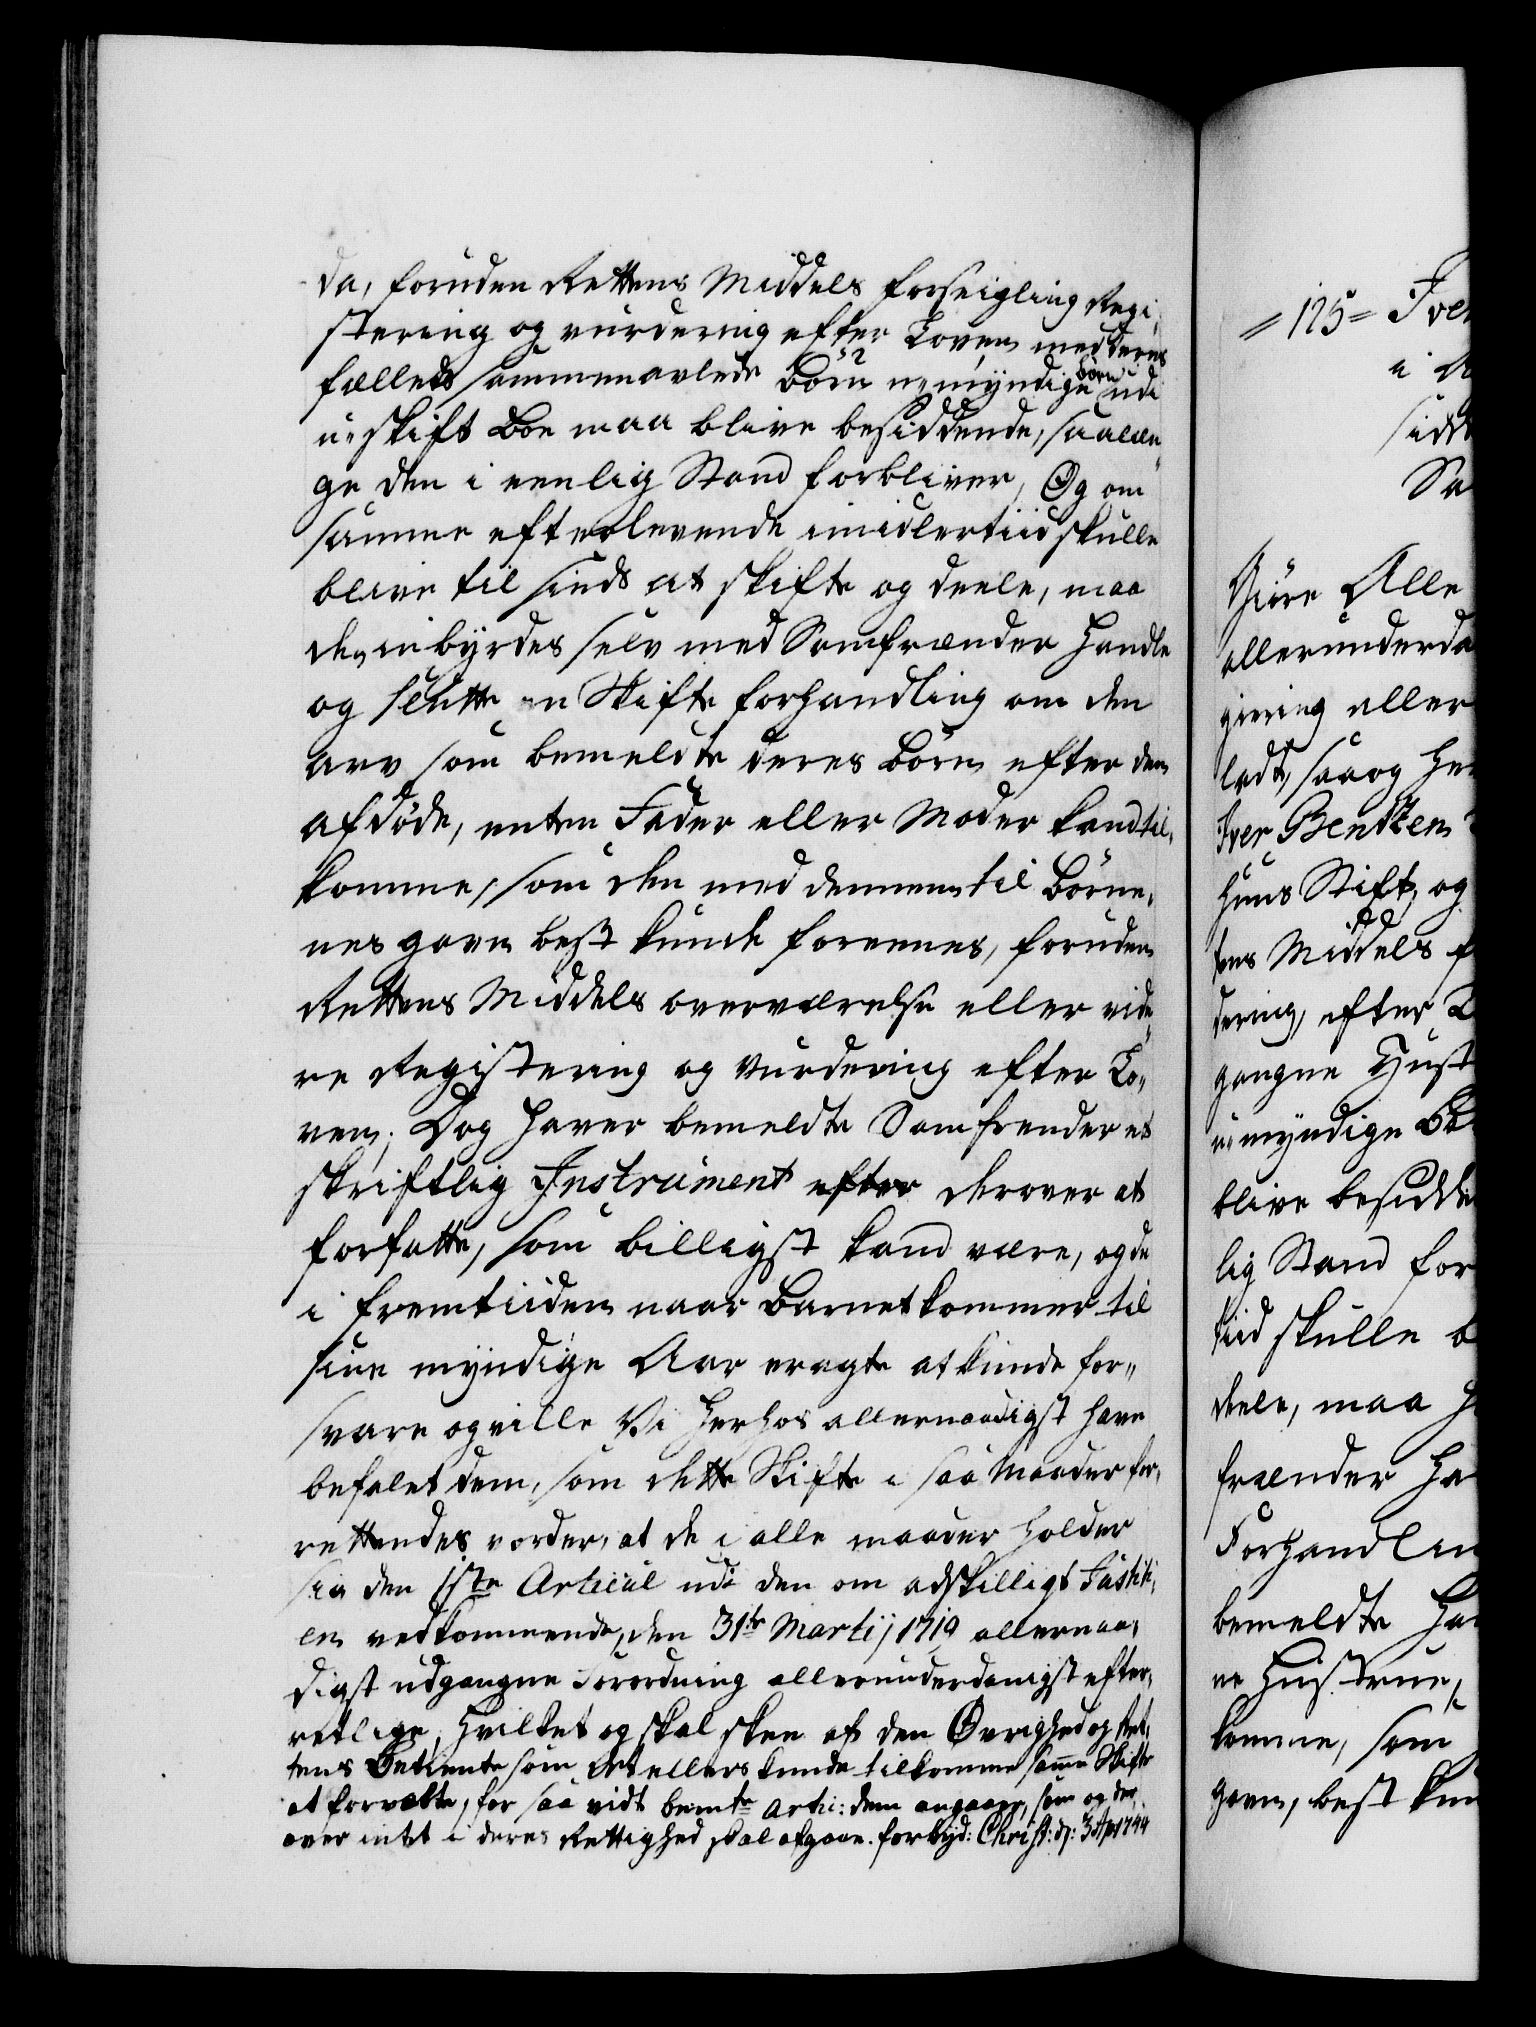 da, foruden Rettens Middels forseigling Regi,
stering og vurdering efter Loven med deres
fælleds sammenavlede Børn u-myndige Børn udi
u-skift Boe maa blive besiddende, saalæn
ge den i eenlig Stand forbliver, Og om
samme efterlevende imidlertiid skulle
blive til sinds at skifte og deele, maa
de, inbyrdes selv med Samfrænder handle
og slutte en Skifte forhandling om den
arv som bemeldte deres Børn efter den
afdøde, enten Fader eller Moder kand til,
komme, som de med dennem til Børne,
nes gavn best kunde foreenes, foruden
Rettens Middels overværelse eller vide,
re Registering og Vurdering efter Lo,,
ven; Dog haver bemeldte Samfrender et
skriftlig Instrument efter derover at
forfatte, som billigst kand være, og de
i fremtiiden naar Barnet kommer til
sine myndige Aar eragte at kunde for,,
svare og ville Vi herhos allernaadigst have
befalet dem, som dette Skifte i saa Maader for,
rettendes vorder, at de i alle maader holder
sig den 1ste Articul udi den om adskilligt Justiti,
en vedkommende, den 31te Martij 1719 allernaa,
digst udgangne Forordning allerunderdanigst efter,
retlige, hvilket og skal skee af den Øvrighed og Ret,
tens Betiente som det ellers kunde tilkomme samme Skifte
at forrette, for saa vidt bemte Arti: dem angaaer, som og der,
over intet i deres Rettighed skal afgaae. forbyd: Christ: d: 3 Apr 1744
= 125 = Iver
i A
sidd
Sa
Giøre Alle
allerunderda
giering aller
ladt, saa og he
Iver Bentzen
huus Stift, og
tens Middels f
dering, efter L
gangne Hust
u-myndige Bø
blive besidde
lig Stand for
tiid skulle b
deele, maa h
frænder ha
Forhandlin
bemeldte ha
ne Hustrue,
komme, som
gavn, best kun